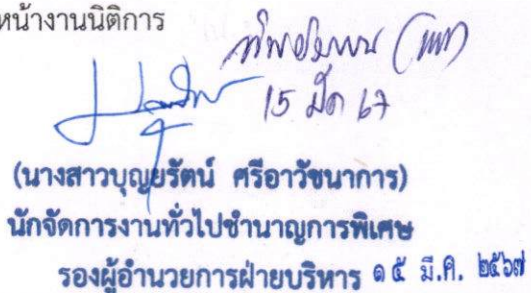 หน้างานนิติการ
15 มีค 67
(นางสาวบุญยรัตน์ ศรีอาวัชนาการ)
นักจัดการงานทั่วไปชำนาญการพิเศษ
รองผู้อำนวยการฝ่ายบริหาร ๑๕ มี.ค. ๒๕๖๗